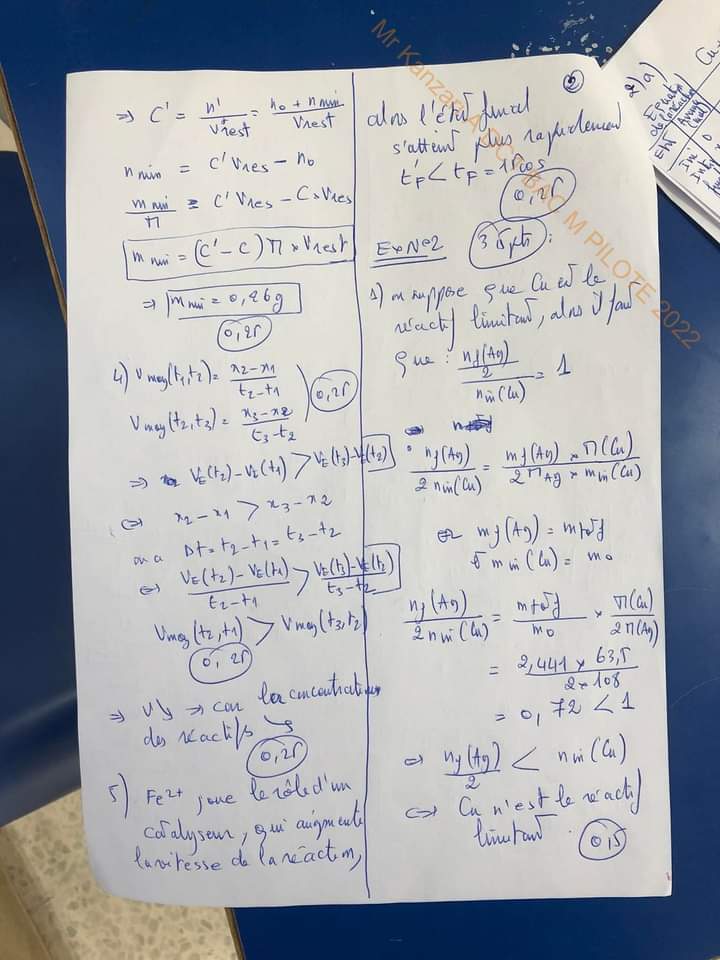 ⇒ C' = n'/Vrest = (n0 + nmin)/Vrest
nmin = C'Vres - n0
mmin/M = C'Vres - C×Vres
mmin = (C'-C) M × Vrest
⇒ mmin = 0,26g
0,25
4) Vmoy(t1,t2) = (x2-x1)/(t2-t1)
Vmoy(t2,t3) = (x3-x2)/(t3-t2)
0,25
⇒ VE(t2)-VE(t1) > VE(t3)-VE(t2)
⇔ x2-x1 > x3-x2
on a Δt = t2-t1 = t3-t2
⇔ (VE(t2)-VE(t1))/(t2-t1) > (VE(t3)-VE(t2))/(t3-t2)
Vmoy(t2,t1) > Vmoy(t3,t2)
0,25
⇒ V↘ → car la concentration
des réactifs ↘
0,25
5) Fe2+ joue le rôle d'un
catalyseur, qui augmente
la vitesse de la réaction,
2
alors l'état final
s'atteint plus rapidement
t'f < tf = 1500s
0,25
Ex N°2
3,5pts :
1) on suppose que Cu est le
réactif limitant, alors il faut
que : (nf(Ag)/2)/nin(Cu) = 1
nf(Ag)/(2nin(Cu)) = (mf(Ag) × M(Cu))/(2MAg × min(Cu))
or mf(Ag) = mtotf
et min(Cu) = m0
nf(Ag)/(2nin(Cu)) = mtotf/m0 × M(Cu)/(2M(Ag))
= (2,441 × 63,5)/(2×108)
= 0,72 < 1
⇒ nf(Ag)/2 < nin(Cu)
⇔ Cu n'est le réactif
limitant.
0,5
2) a)
Equation
de la réaction
Etat
Avanc
(mol)
Ini
0
Inter
x
Cu
Mr Kanzari A DCT BAC M PILOTE 2022